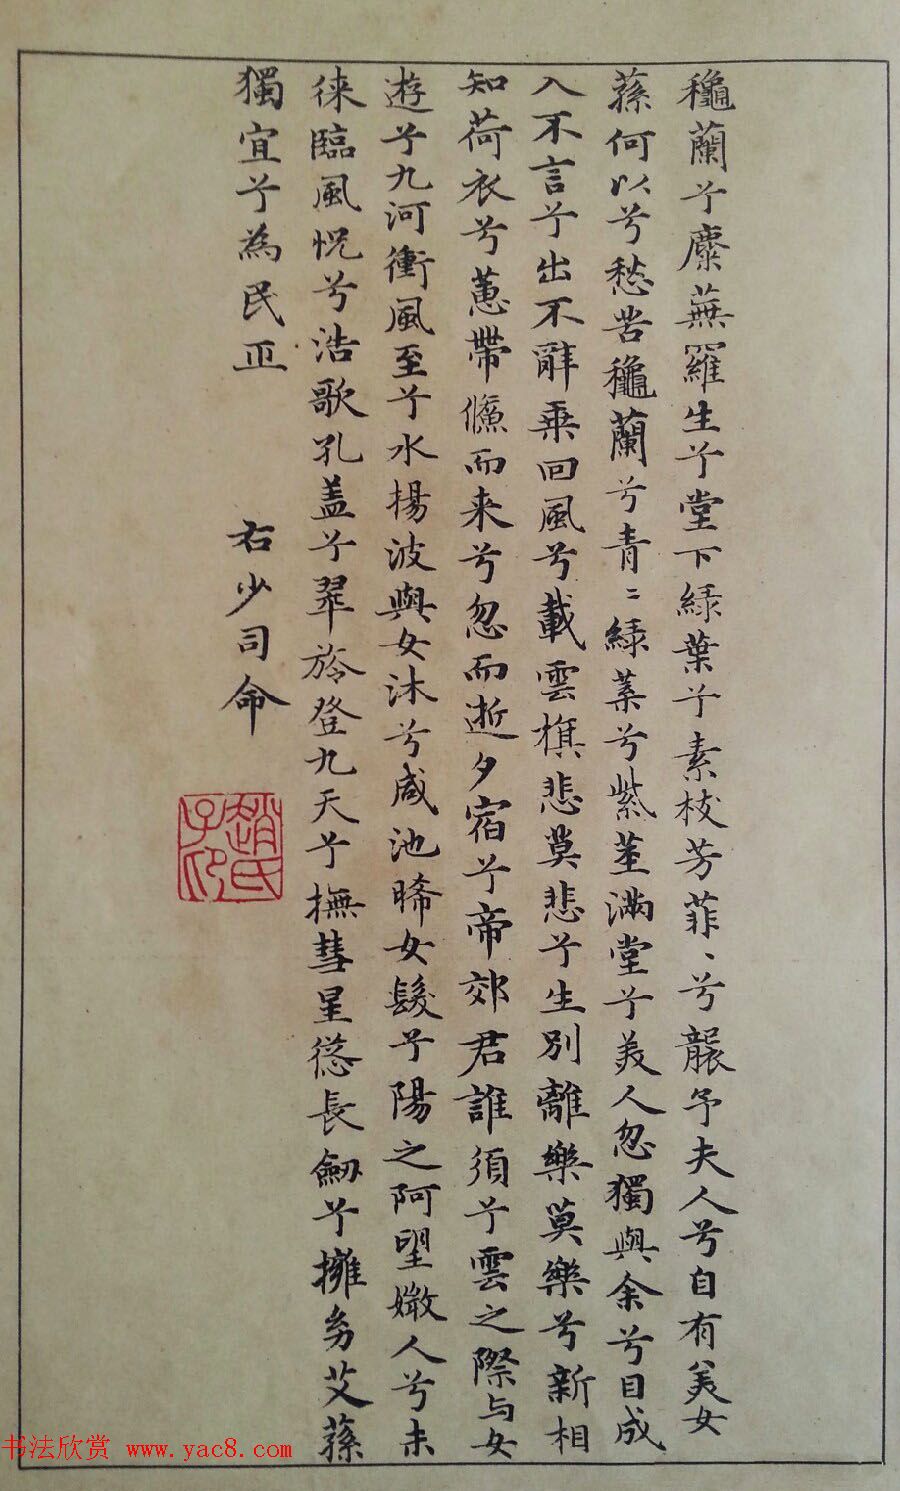 穐蘭兮麋蕪羅生兮堂下綠葉兮素枝芳菲〻兮襲予夫人兮自有美女
蓀何以兮愁苦穐蘭兮青〻綠葉兮紫莖滿堂兮美人忽獨與余兮目成
入不言兮出不辭乘回風兮載雲旗悲莫悲兮生別離樂莫樂兮新相
知荷衣兮蕙帶儵而来兮忽而逝夕宿兮帝郊君誰須兮雲之際与女
遊兮九河衝風至兮水揚波與女沐兮咸池晞女髮兮陽之阿望媺人兮未
徠臨風怳兮浩歌孔盖兮翠旍登九天兮撫彗星慫長劒兮擁㓜艾蓀
獨宜兮為民正
右少司命
趙氏子印
书法欣赏 www.yac8.com